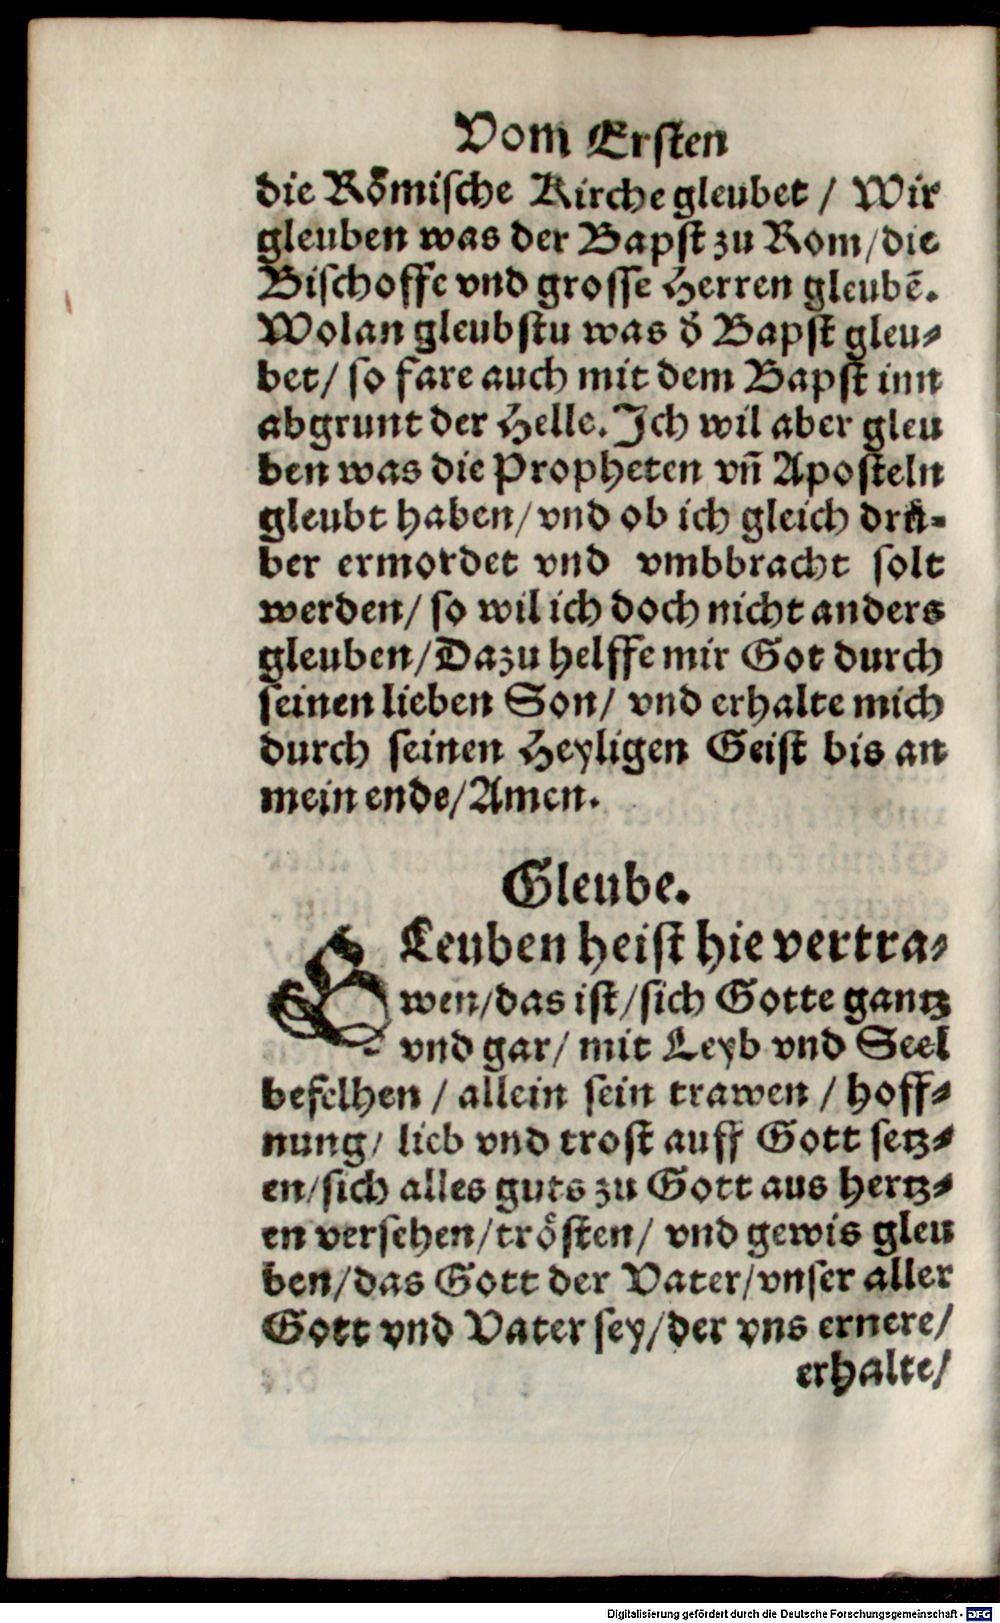 Vom Ersten
die Rőmische Kirche gleubet / Wir
gleuben was der Bapst zu Rom/die
Bischoffe vnd grosse Herren gleubē.
Wolan gleubstu was d̓ Bapst gleu⸗
bet/ so fare auch mit dem Bapst inn
abgrunt der Helle. Ich wil aber gleu
ben was die Propheten vn̄ Aposteln
gleubt haben/vnd ob ich gleich drů⸗
ber ermordet vnd vmbbracht solt
werden/ so wil ich doch nicht anders
gleuben/Dazu helffe mir Got durch
seinen lieben Son/ vnd erhalte mich
durch seinen Heyligen Geist bis an
mein ende/Amen.
Gleube.
GLeuben heist hie vertra⸗
wen/das ist/sich Gotte gantz
vnd gar/ mit Leyb vnd Seel
befelhen / allein sein trawen / hoff⸗
nung/ lieb vnd trost auff Gott setz⸗
en/sich alles guts zu Gott aus hertz⸗
en versehen/trösten/ vnd gewis gleu
ben/das Gott der Vater/vnser aller
Gott vnd Vater sey/der vns ernere/
erhalte/
Digitalisierung gefördert durch die Deutsche Forschungsgemeinschaft - DFG